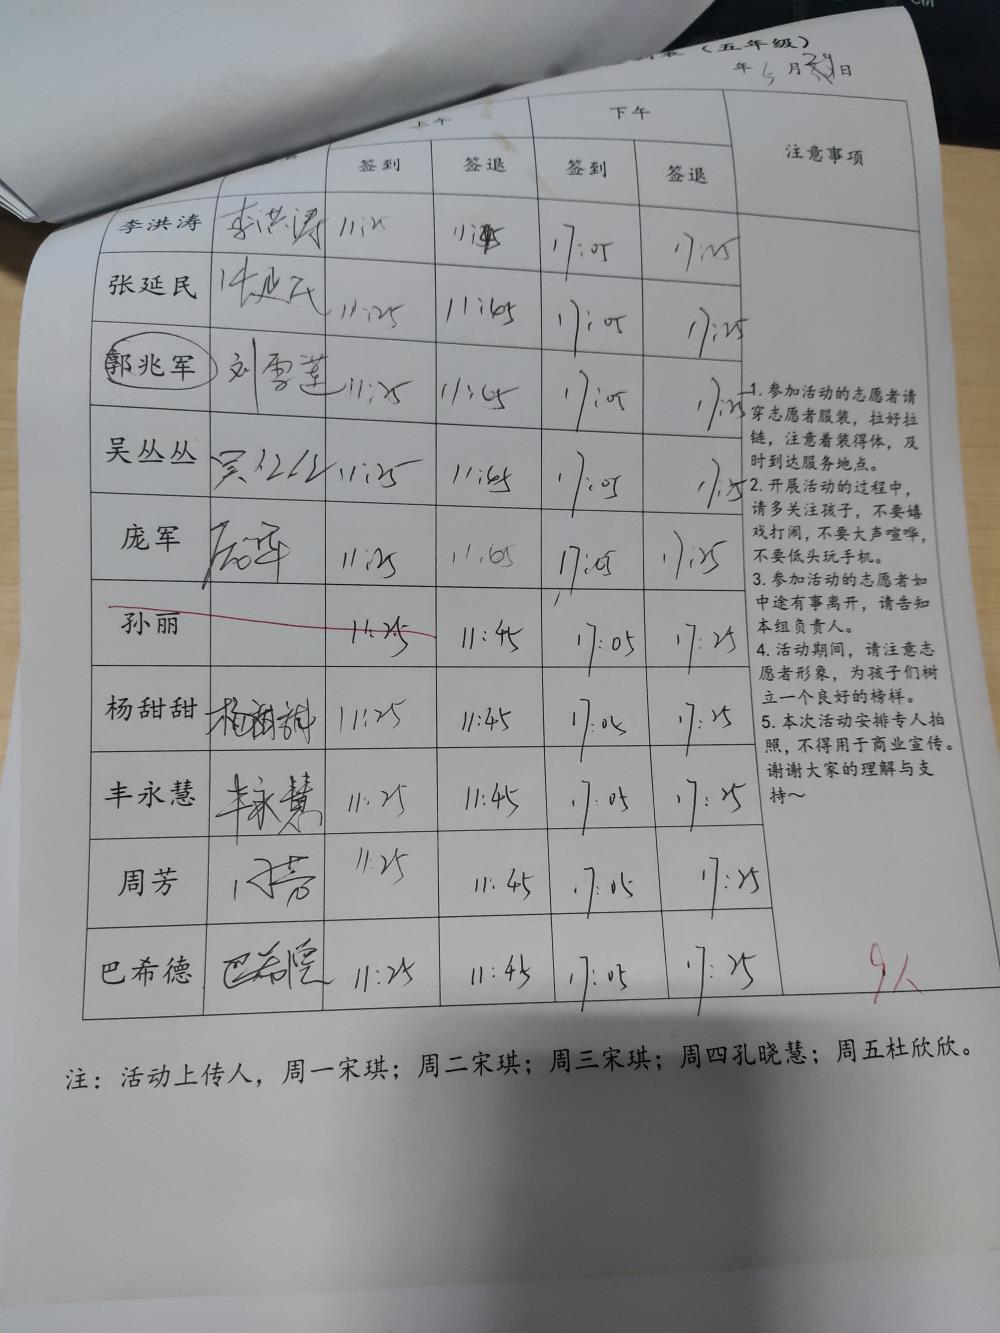 （五年级）
年 月 日
上午 下午 注意事项
签到 签退 签到 签退
李洪涛 李洪涛 11:2 17:05 17:25
张延民 张延民 11:25 11:45 17:05 17:25
郭兆军 刘雪莲 11:25 11:45 17:05 17:25
吴丛丛 吴丛丛 11:25 11:45 17:05 17:25
庞军 庞军 11:25 11:45 17:05 17:25
孙丽 11:25 11:45 17:05 17:25
杨甜甜 杨甜甜 11:25 11:45 17:05 17:25
丰永慧 丰永慧 11:25 11:45 17:05 17:25
周芳 周芳 11:25 11:45 17:05 17:25
巴希德 巴希德 11:25 11:45 17:05 17:25
1. 参加活动的志愿者请
穿志愿者服装，拉好拉
链，注意着装得体，及
时到达服务地点。
2. 开展活动的过程中，
请多关注孩子，不要嬉
戏打闹，不要大声喧哗，
不要低头玩手机。
3. 参加活动的志愿者如
中途有事离开，请告知
本组负责人。
4. 活动期间，请注意志
愿者形象，为孩子们树
立一个良好的榜样。
5. 本次活动安排专人拍
照，不得用于商业宣传。
谢谢大家的理解与支
持～
9人
注：活动上传人，周一宋琪；周二宋琪；周三宋琪；周四孔晓慧；周五杜欣欣。